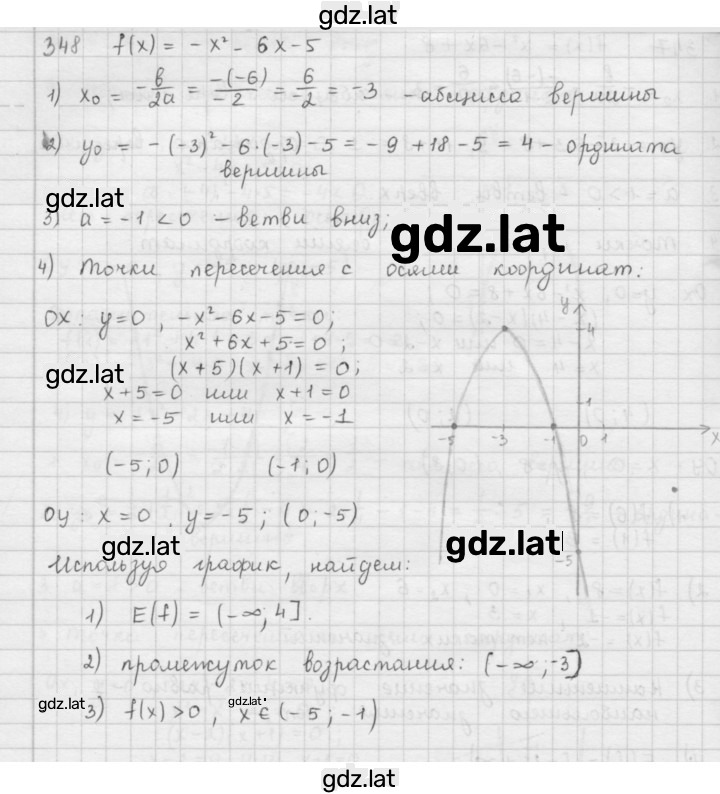 gdz.lat
348 f(x) = -x² - 6x - 5
1) x₀ = -в/2a = -(-6)/-2 = 6/-2 = -3 - абсцисса вершины
2) y₀ = -(-3)² - 6·(-3) - 5 = -9 + 18 - 5 = 4 - ордината
вершины
gdz.lat
3) a = -1 < 0 - ветви вниз;
gdz.lat
4) Точки пересечения с осями координат:
Ox: y=0, -x² - 6x - 5 = 0;
x² + 6x + 5 = 0;
(x+5)(x+1) = 0;
gdz.lat
x+5=0 или x+1=0
x=-5 или x=-1
(-5;0) (-1;0)
Oy: x=0, y=-5; (0;-5)
y
4
1
-5 -3 -1 0 1 x
-5
gdz.lat
gdz.lat
Используя график, найдем:
1) E(f) = (-∞; 4].
2) промежуток возрастания: (-∞; -3]
gdz.lat
gdz.lat
3) f(x) > 0, x ∈ (-5; -1)
gdz.lat